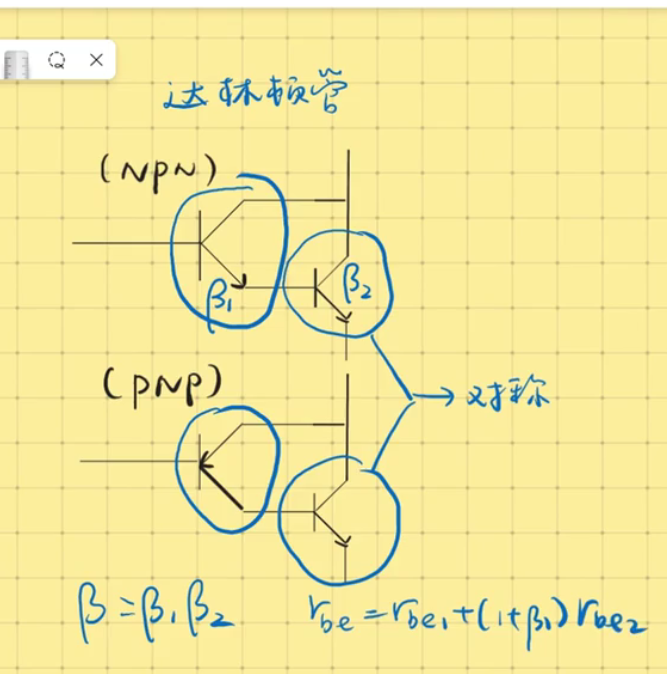 达林顿管
(NPN)
β₁
β₂
(PNP)
对称
β=β₁β₂
rbe=rbe₁+(1+β₁)rbe₂